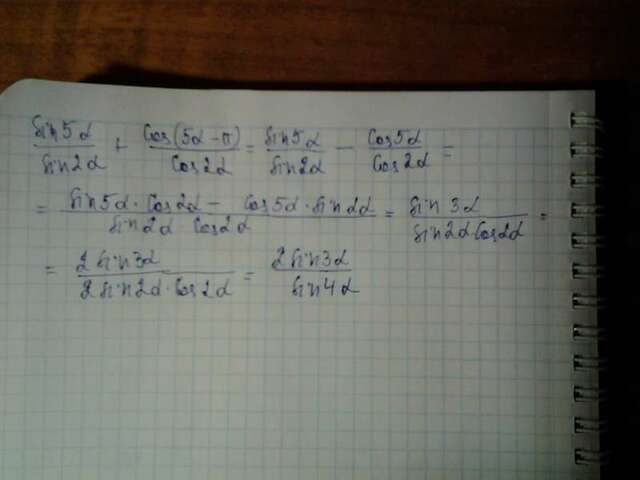 sin5α/sin2α + cos(5α-π)/cos2α = sin5α/sin2α - cos5α/cos2α =
= (sin5α · cos2α - cos5α · sin2α)/(sin2α · cos2α) = sin3α/(sin2α cos2α) =
= 2sin3α/(2sin2α · cos2α) = 2sin3α/sin4α